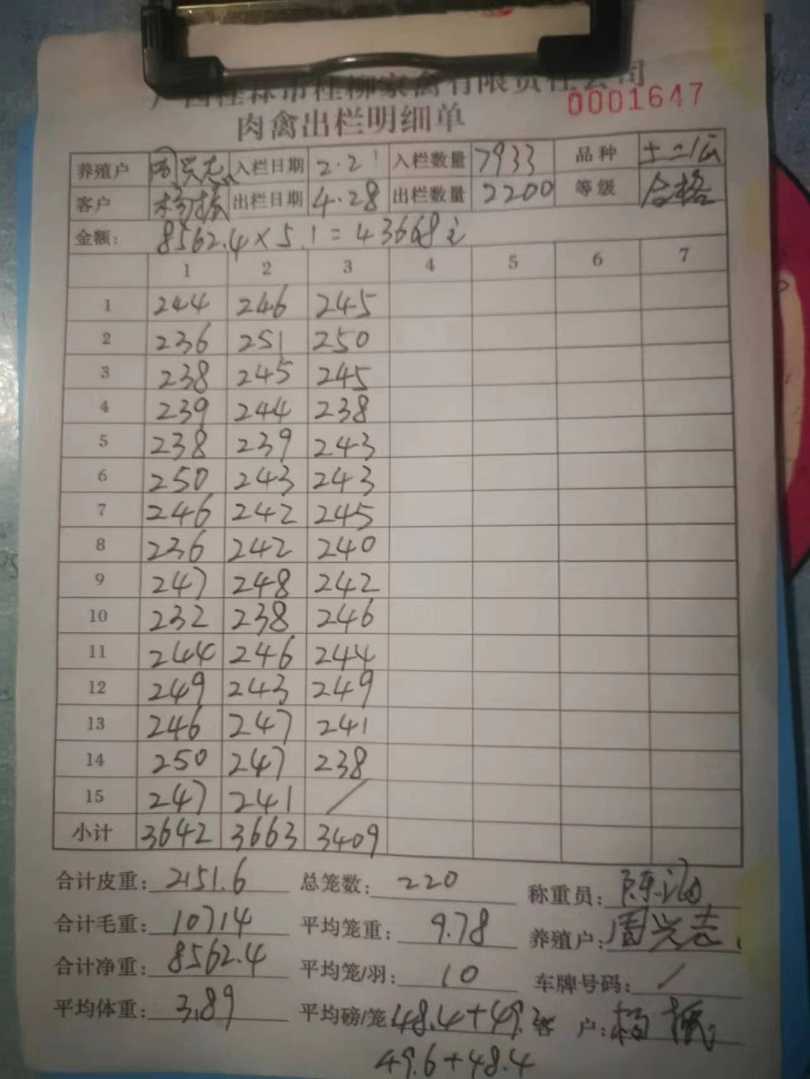 广西桂林市桂柳家禽有限责任公司
0001647
肉禽出栏明细单
养殖户 周兴志 入栏日期 2.21 入栏数量 7933 品种 土二公
客户 杨振 出栏日期 4.28 出栏数量 2200 等级 合格
金额: 8562.4×5.1=43668
1 2 3 4 5 6 7
1 244 246 245
2 236 251 250
3 238 245 245
4 239 244 238
5 238 239 243
6 250 243 243
7 246 242 245
8 236 242 240
9 247 248 242
10 232 238 246
11 244 246 244
12 249 243 249
13 246 247 241
14 250 247 238
15 247 241 /
小计 3642 3663 3409
合计皮重: 2151.6 总笼数: 220 称重员:
合计毛重: 10714 平均笼重: 9.78 养殖户: 周兴志
合计净重: 8562.4 平均笼/羽: 10 车牌号码: /
平均体重: 3.89 平均磅/笼 48.4+49.2 客户: 杨振
49.6+48.4